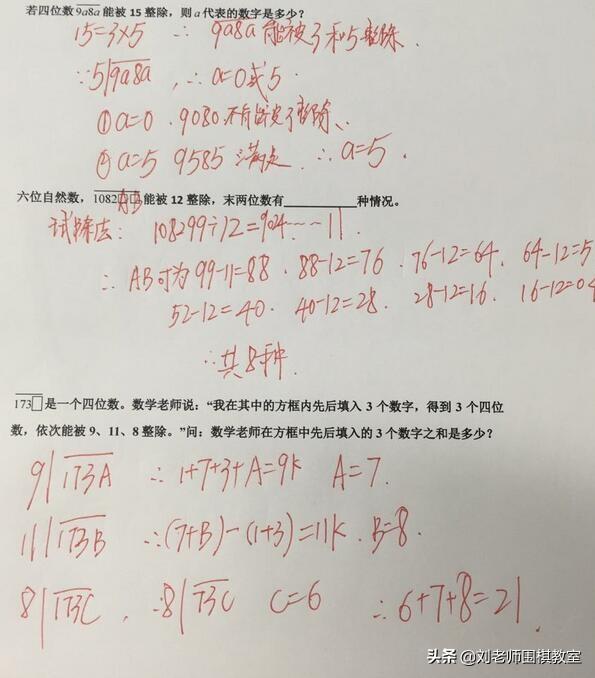 若四位数9a8a能被 15 整除，则 a 代表的数字是多少?
15=3×5 ∴ 9a8a能被3和5整除.
∵5|9a8a, ∴a=0或5.
①a=0. 9080不能被3整除、
②a=5 9585满足 ∴a=5.
六位自然数，1082□□能被 12 整除，末两位数有____________种情况。
AB
试除法: 108299÷12=9024……11
∴ AB可为 99-11=88. 88-12=76. 76-12=64. 64-12=5
52-12=40. 40-12=28. 28-12=16. 16-12=04
∴共8种.
173□是一个四位数。数学老师说：“我在其中的方框内先后填入 3 个数字，得到 3 个四位
数，依次能被 9、11、8 整除。”问：数学老师在方框中先后填入的 3 个数字之和是多少?
9|173A ∴1+7+3+A=9k A=7.
11|173B ∴(7+B)-(1+3)=11k. B=8.
8|173C, ∴8|73C C=6 ∴6+7+8=21.
头条 @刘老师围棋教室